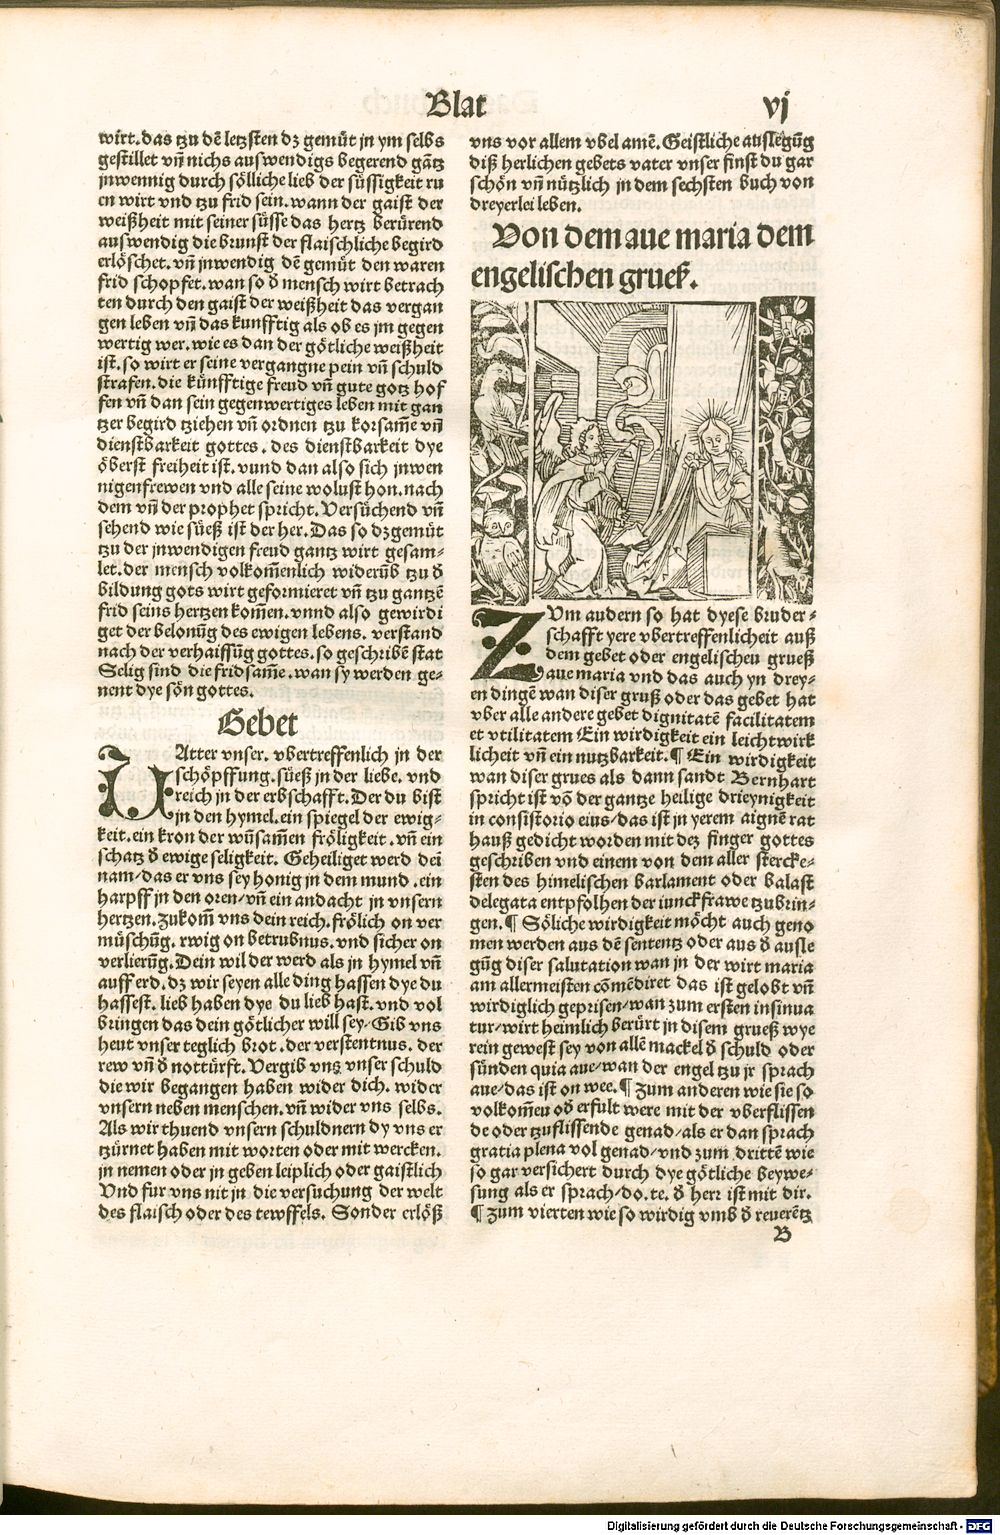 Blat vj
wirt. das tzu dē letzsten dz gemüt jn ym selbs
gestillet vn̄ nichs auswendigs begerend gātz
jnwennig durch sölliche lieb der süssigkeit ru
en wirt vnd tzu frid sein. wann der gaist der
weißheit mit seiner süsse das hertz berürend
auswendig die brunst der flaischliche begird
erlöschet. vn̄ jnwendig dē gemüt den waren
frid schopfet. wan so d̄ mensch wirt betrach
ten durch den gaist der weißheit das vergan
gen leben vn̄ das kunfftig als ob es jm gegen
wertig wer. wie es dan der götliche weißheit
ist. so wirt er seine vergangne pein vn̄ schuld
strafen. die künfftige freud vn̄ gute gotz hof
fen vn̄ dan sein gegenwertiges leben mit gan
tzer begird tziehen vn̄ ordnen tzu korsam̄e vn̄
dienstbarkeit gottes. des dienstbarkeit dye
öberst freiheit ist. vund dan also sich jnwen
nigenfrewen vnd alle seine wolust hon. nach
dem vn̄ der prophet spricht. Versüchend vn̄
sehend wie süeß ist der her. Das so dzgemüt
tzu der jnwendigen freud gantz wirt gesam⸗
let. der mensch volkom̄enlich widerūb tzu d̄
bildung gots wirt geformieret vn̄ tzu gantzē
frid seins hertzen kom̄en. vnnd also gewirdi
get der belonūg des ewigen lebens. verstand
nach der verhaissūg gottes. so geschribē stat
Selig sind die fridsam̄e. wan sy werden ge⸗
nent dye sön gottes.
Gebet
VAtter vnser. vbertreffenlich jn der
schöpffung. süeß jn der liebe. vnd
reich jn der erbschafft. Der du bist
jn den hymel. ein spiegel der ewig⸗
keit. ein kron der wūsam̄en fröligkeit. vn̄ ein
schatz d̄ ewige seligkeit. Geheiliget werd dei
nam/das er vns sey honig jn dem mund. ein
harpff jn den oren/vn̄ ein andacht jn vnsern
hertzen. Zukom̄ vns dein reich. frölich on ver
müschūg. rwig on betrubnus. vnd sicher on
verlierūg. Dein wil der werd als jn hymel vn̄
auff erd. dz wir seyen alle ding hassen dye du
hassest. lieb haben dye du lieb hast. vnd vol
bringen das dein götlicher will sey/Gib vns
heut vnser teglich brot. der verstentnus. der
rew vn̄ d̄ nottürft. Vergib vns vnser schuld
die wir begangen haben wider dich. wider
vnsern neben menschen. vn̄ wider vns selbs.
Als wir thuend vnsern schuldnern dy vns er
tzürnet haben mit worten oder mit wercken.
jn nemen oder jn geben leiplich oder gaistlich
Vnd fur vns nit jn die versuchung der welt
des flaisch oder des tewffels. Sonder erlöß
vns vor allem vbel amē. Geistliche auslegūg
diß herlichen gebets vater vnser finst du gar
schön vn̄ nützlich jn dem sechsten buch von
dreyerlei leben.
Von dem aue maria dem
engelischen grueß.
ZVm andern so hat dyese bruder⸗
schafft yere vbertreffenlicheit auß
dem gebet oder engelischen grueß
aue maria vnd das auch yn drey⸗
en dingē wan diser gruß oder das gebet hat
vber alle andere gebet dignitatē facilitatem
et vtilitatem Ein wirdigkeit ein leichtwirk
licheit vn̄ ein nutzbarkeit. ¶ Ein wirdigkeit
wan diser grues als dann sandt Bernhart
spricht ist vō der gantze heilige drieynigkeit
in consistorio eius/das ist jn yerem aignē rat
hauß gedicht worden mit dez finger gottes
geschriben vnd einem von dem aller stercke⸗
sten des himelischen barlament oder balast
delegata entpfolhen der iunckfrawe tzubrin⸗
gen. ¶ Söliche wirdigkeit möcht auch geno
men werden aus dē sententz oder aus d̄ ausle
gūg diser salutation wan jn der wirt maria
am allermeisten cōmēdiret das ist gelobt vn̄
wirdiglich geprisen/wan zum ersten insinua
tur/wirt heimlich berürt jn disem grueß wye
rein gewest sey von allē mackel d̄ schuld oder
sünden quia aue/wan der engel tzu jr sprach
aue/das ist on wee. ¶ Zum anderen wie sie so
volkom̄en od̄ erfult were mit der vberflissen
de oder tzuflissende genad/als er dan sprach
gratia plena vol genad/vnd zum drittē wie
so gar versichert durch dye götliche beywe⸗
sung als er sprach/do. te. d̄ herr ist mit dir.
¶ Zum vierten wie so wirdig vmb d̄ reuerētz
B
Digitalisierung gefördert durch die Deutsche Forschungsgemeinschaft - DFG